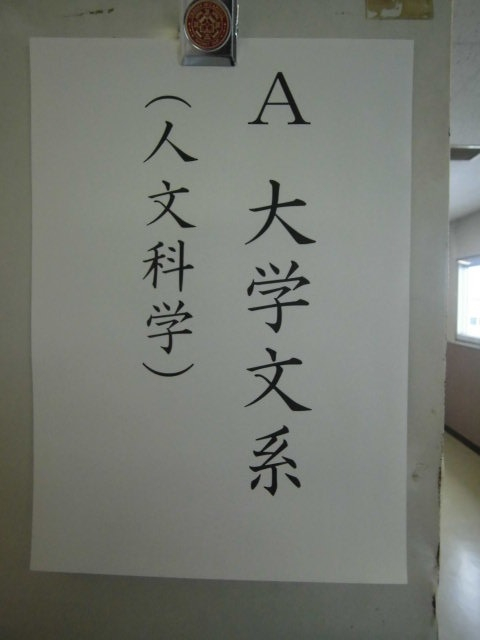 A 大学文系
（人文科学）